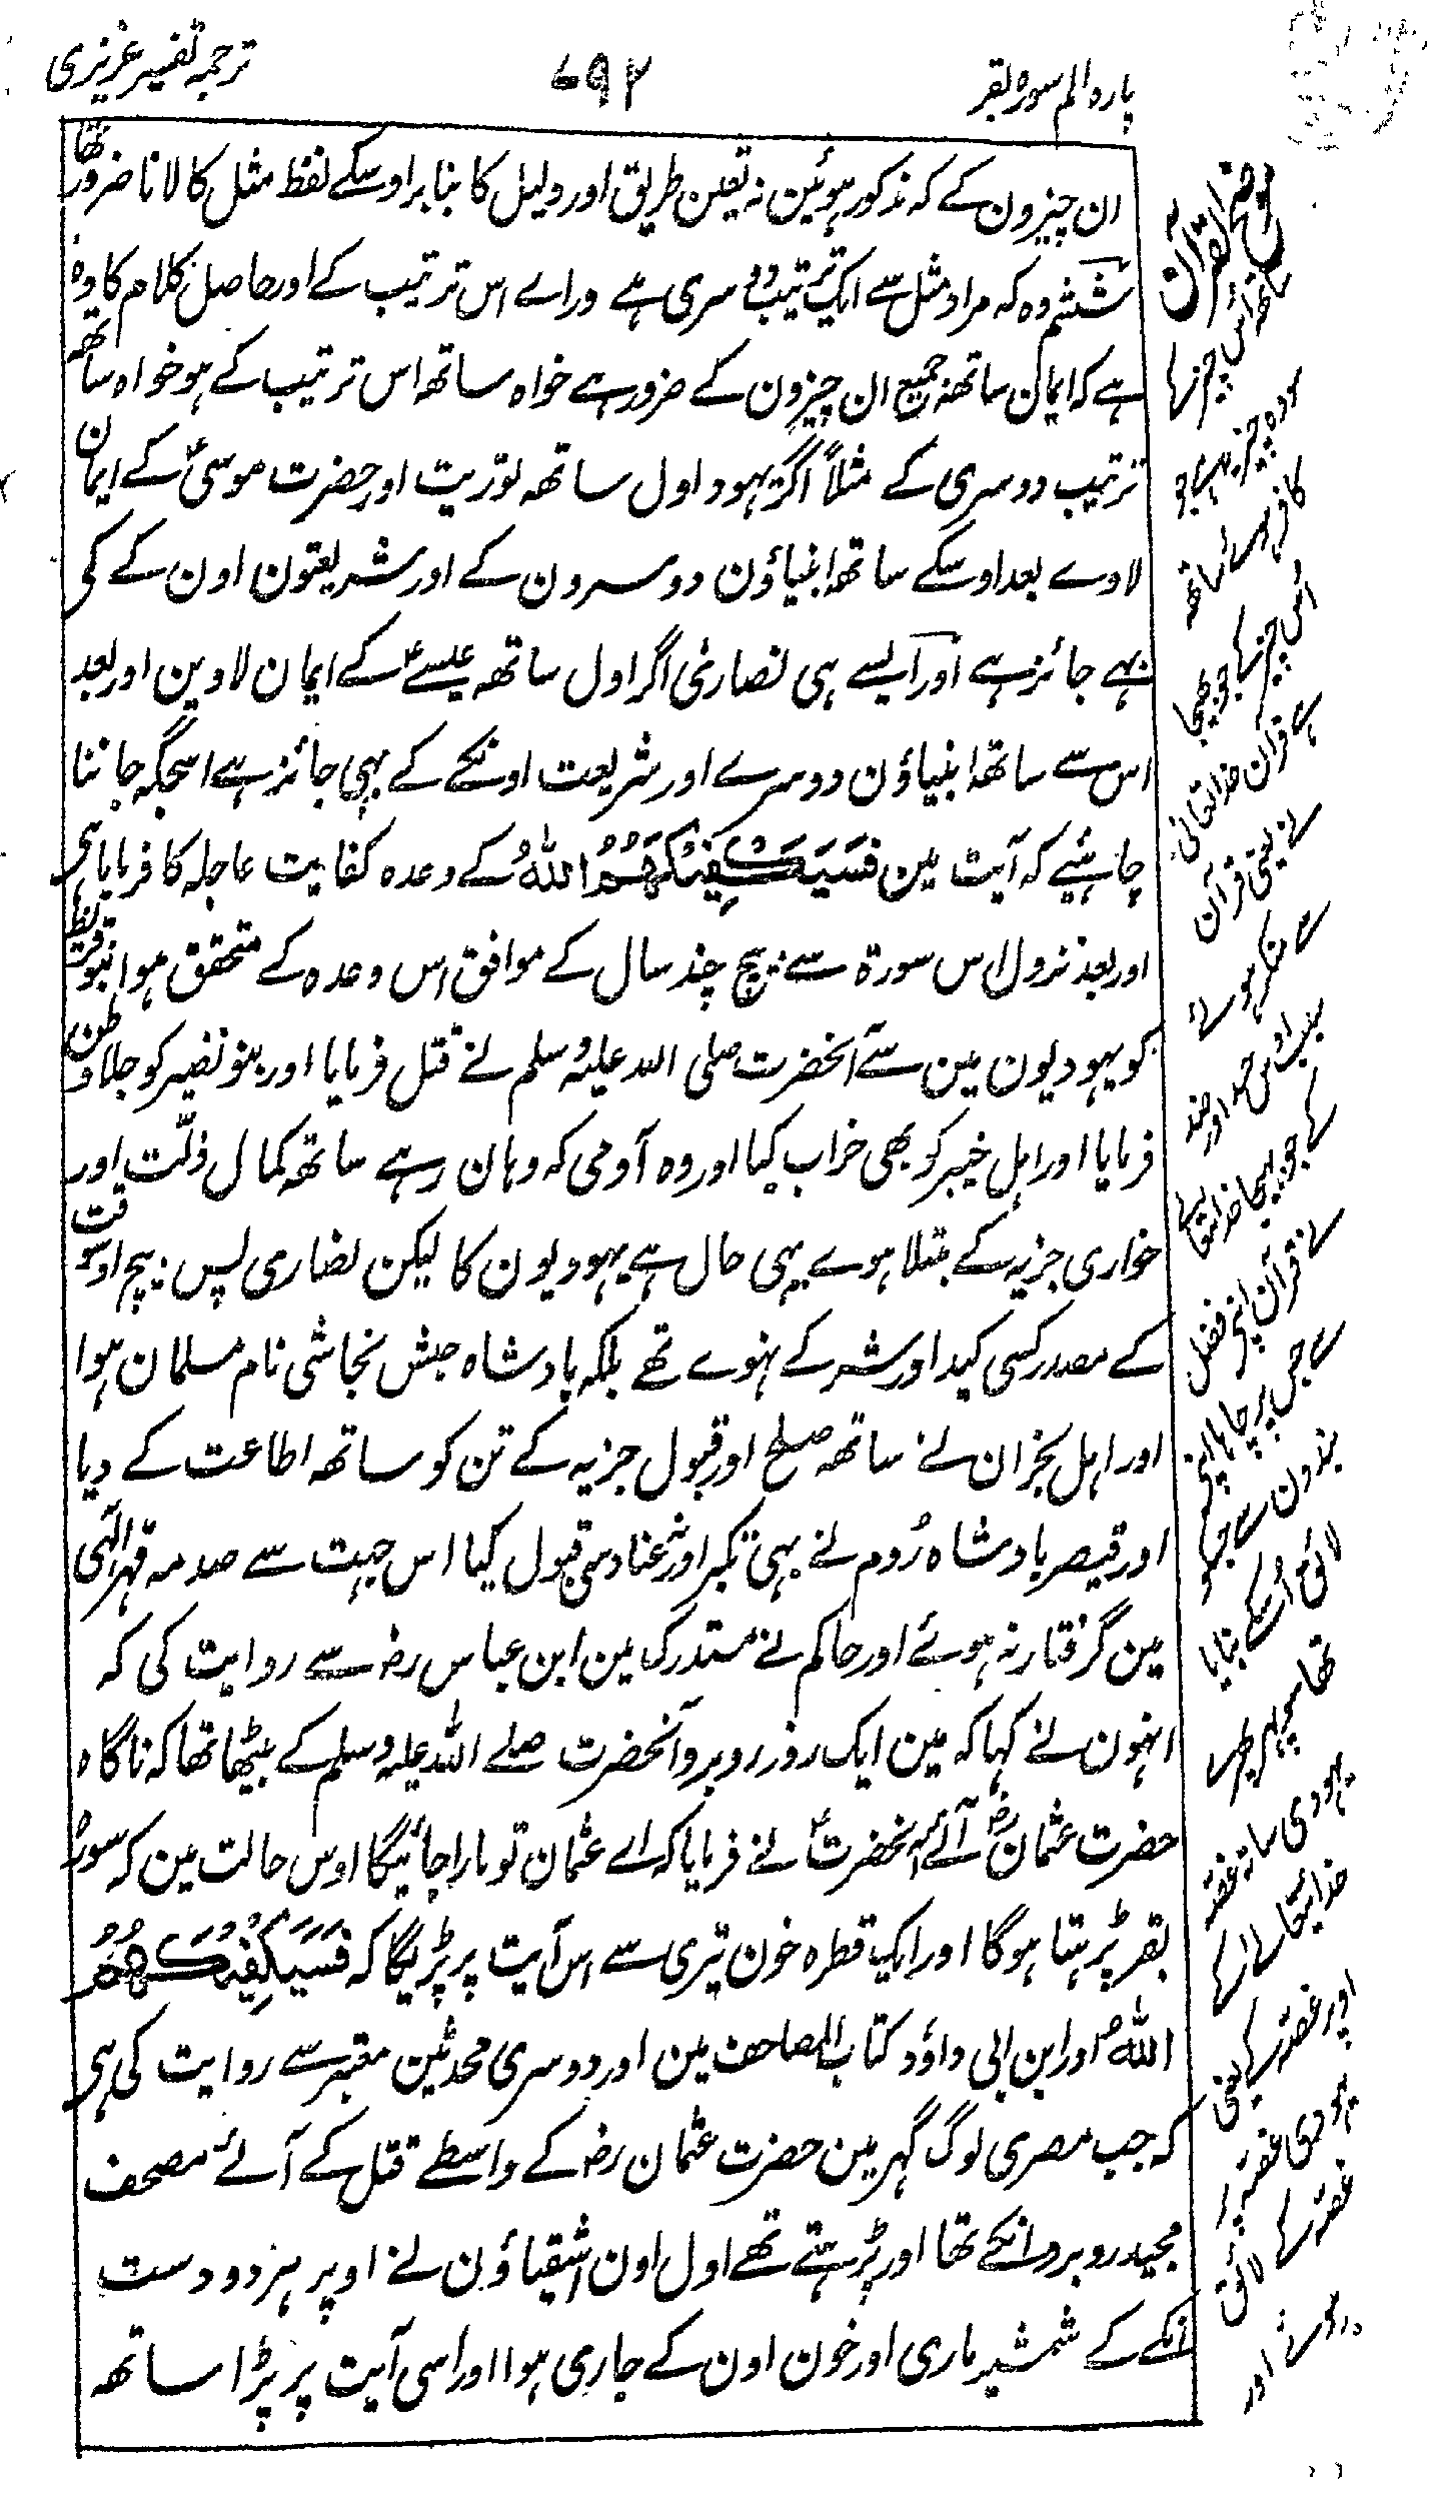 پارہ الم سورہ بقر
۷۹۲
ترجمہ تفسیر عزیزی
ان چیزون کے کہ مذکور ہوئین نہ تعین طریق اور دلیل کا بنا بر اوسکے لفظ مثل کا لانا ضرور تھا
ششم وہ کہ مراد مثل سے ایک ترتیب دوسری ہے وراے اس ترتیب کے اور حاصل کلام کا وہ
ہے کہ ایمان ساتھ جمیع ان چیزون کے ضرور ہے خواہ ساتھ اس ترتیب کے ہو خواہ ساتھ
ترتیب دوسری کے مثلاً اگر یہود اول ساتھ توریت اور حضرت موسیٰ کے ایمان
لاوے بعد اوسکے ساتھ انبیاؤن دوسرون کے اور شریعتون اون کے کی
بہے جائز ہے اور ایسے ہی نصاریٰ اگر اول ساتھ عیسے کے ایمان لاوین اور بعد
اس سے ساتھ انبیاؤن دوسرے اور شریعت اونکے کے بھی جائز ہے اسجگہ جاننا
چاہئیے کہ آیت مین فَسَيَكْفِيْكَهُمُ اللّٰهُ کے وعدہ کفایت عاجلہ کا فرمایا ہی
اور بعد نزول اس سورۃ سے بیچ چند سال کے موافق اس وعدہ کے متحقق ہوا بنو قریظہ
کو یہودیون مین سے آنحضرت صلی اللہ علیہ وسلم نے قتل فرمایا اور بنو نضیر کو جلا وطن
فرمایا اور اہل خیبر کو بھی خراب کیا اور وہ آدمی کہ وہان رہے ساتھ کمال ذلّت اور
خواری جزیہ کے مبتلا ہوے یہی حال ہے یہودیون کا لیکن نصاریٰ پس بیچ اوسوقت
کے مصدر کسی کید اور شر کے نہوے تھے بلکہ پادشاہ حبش نجاشی نام مسلمان ہوا
اور اہل نجران نے ساتھ صلح اور قبول جزیہ کے تن کو ساتھ اطاعت کے دیا
اور قیصر بادشاہ رُوم نے بہی تکبر اور عناد سے قبول کیا اس جہت سے صدمہ قہر الٰہی
مین گرفتار نہ ہوئے اور حاکم نے مستدرک مین ابن عباس رضہ سے روایت کی کہ
انہون نے کہا کہ مین ایک روز روبرو آنحضرت صلے اللہ علیہ وسلم کے بیٹھا تھا کہ ناگاہ
حضرت عثمانؓ آئے آنحضرتؐ نے فرمایا کہ اے عثمان تو مارا جائیگا اوس حالت مین کہ سورہ
بقر پڑہتا ہوگا اور ایک قطرہ خون تیری سے اس آیت پر پڑیگا کہ فَسَيَكْفِيْكَهُمُ
اللّٰهُ اور ابن ابی داؤد کتاب المصاحف مین اور دوسری محدثین معتبر سے روایت کی ہی
کہ جب مصری لوگ گہر مین حضرت عثمان رضہ کے واسطے قتل کے آئے مصحف
مجید روبرو انکے تھا اور پڑہتے تھے اول اون اشقیاؤن نے اوپر ہر دو دست
انکے کے شمشیر ماری اور خون اون کے جاری ہوا اور اسی آیت پر پڑا ساتھ
موضح القرآن
ساتھ اس چیز کے
کافر ہوئے ساتھ
اُس چیز کے جو بھیجا
ہے قرآن خدا تعالیٰ
نے یعنی قرآن
سے منکر ہوئے
نے قرآن اپنے فضل
سے جس پر چاہا اپنے
بندون سے
لائق اُسکے بنایا
تھا سو پھر
یہودی ساتھ غصہ
خدا تعالیٰ کے
اوپر غصہ کے یعنی
یہودی غصہ پر
غصہ کے لائق
ہوئے اور